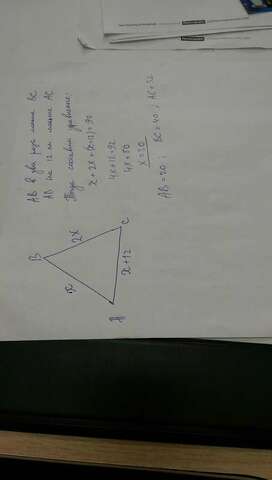 AB в два раза меньше BC
AB на 12 см меньше AC
Тогда составим уравнение:
x + 2x + (x+12) = 92
4x+12=92
4x=80
x=20
AB = 20 ; BC = 40 ; AC = 32
B
x
2x
A
x+12
C